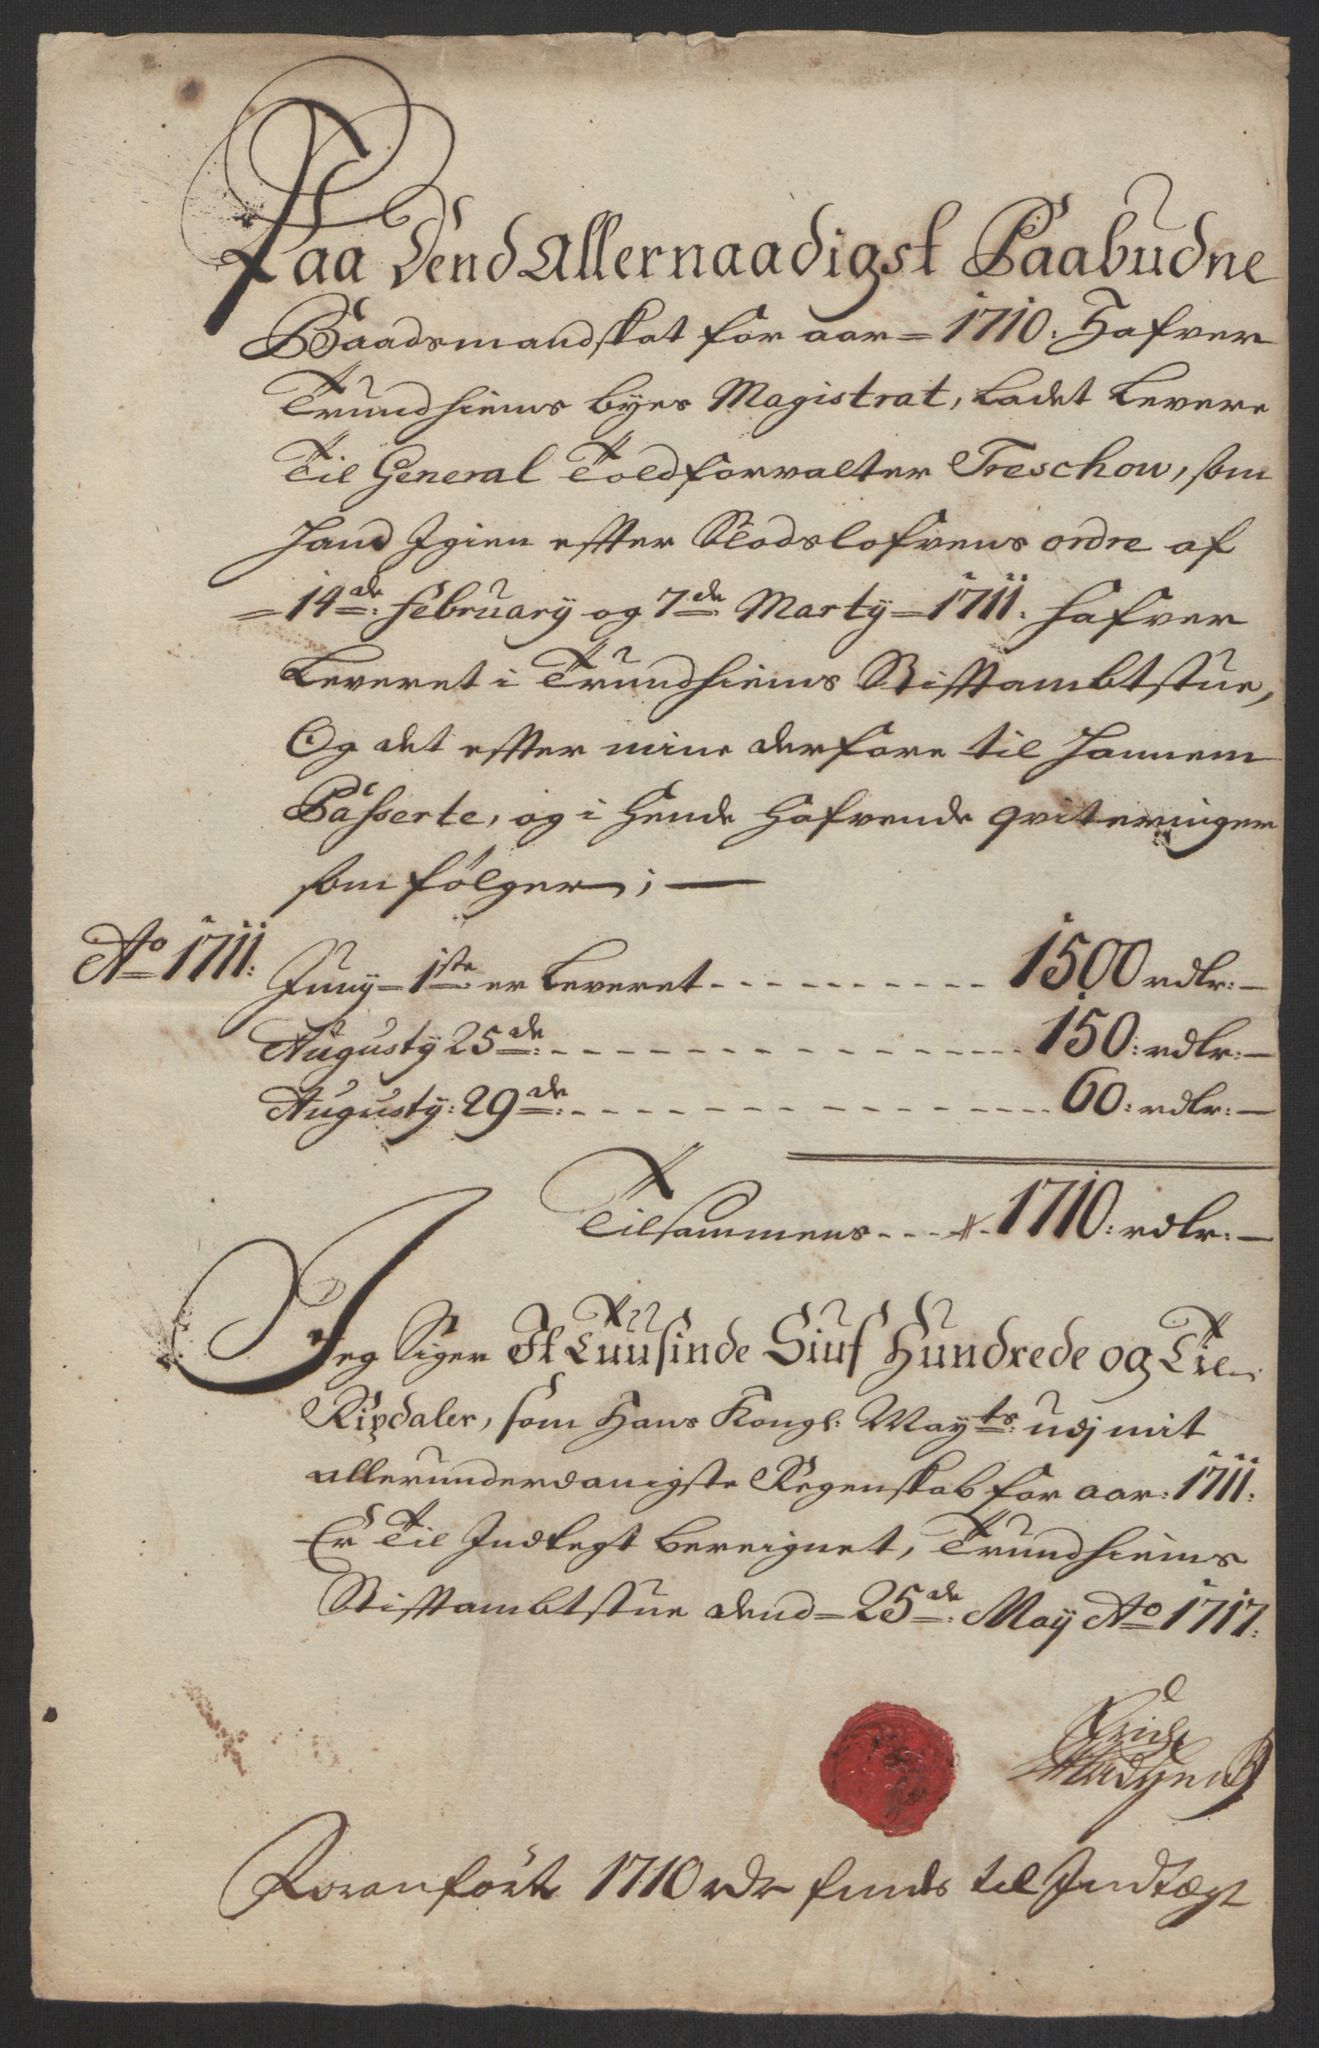 Paa Dend Allernaadigst Paabudne
Baadsmandskat for aar 1710. Hafver
Trundhiems byes Magistrat, Ladet Levere
Til General Toldforvalter Treschow, som
hand Igien effter Slodslofvens ordre af
14de: February og 7de: Marty 1711. hafver
Leveret i Trundhiems Stifftambtstue,
Og det effter mine derfore til hannem
Passerte, og i hende hafvende qviteringer
som følger;
Ao 1711:
Juny 1ste er Leveret 1500 rdlr:
Augusty 25de: 150: rdlr:
Augusty: 29de: 60: rdlr:
Tilsammens 1710: rdlr:
Jeg Siger Et Tuusinde Siuf Hundrede og Tie
Rixdaler, som Hans Kongl: Mayts: udj mit
allerunderdanigste Regenskab for aar: 1711:
Er Til Indtegt bereignet, Trundhiems
Stifftambtstue dend 25de: May Ao 1717:
Erich
Madsen
Foranførte 1710 rdr findes til Indtægt